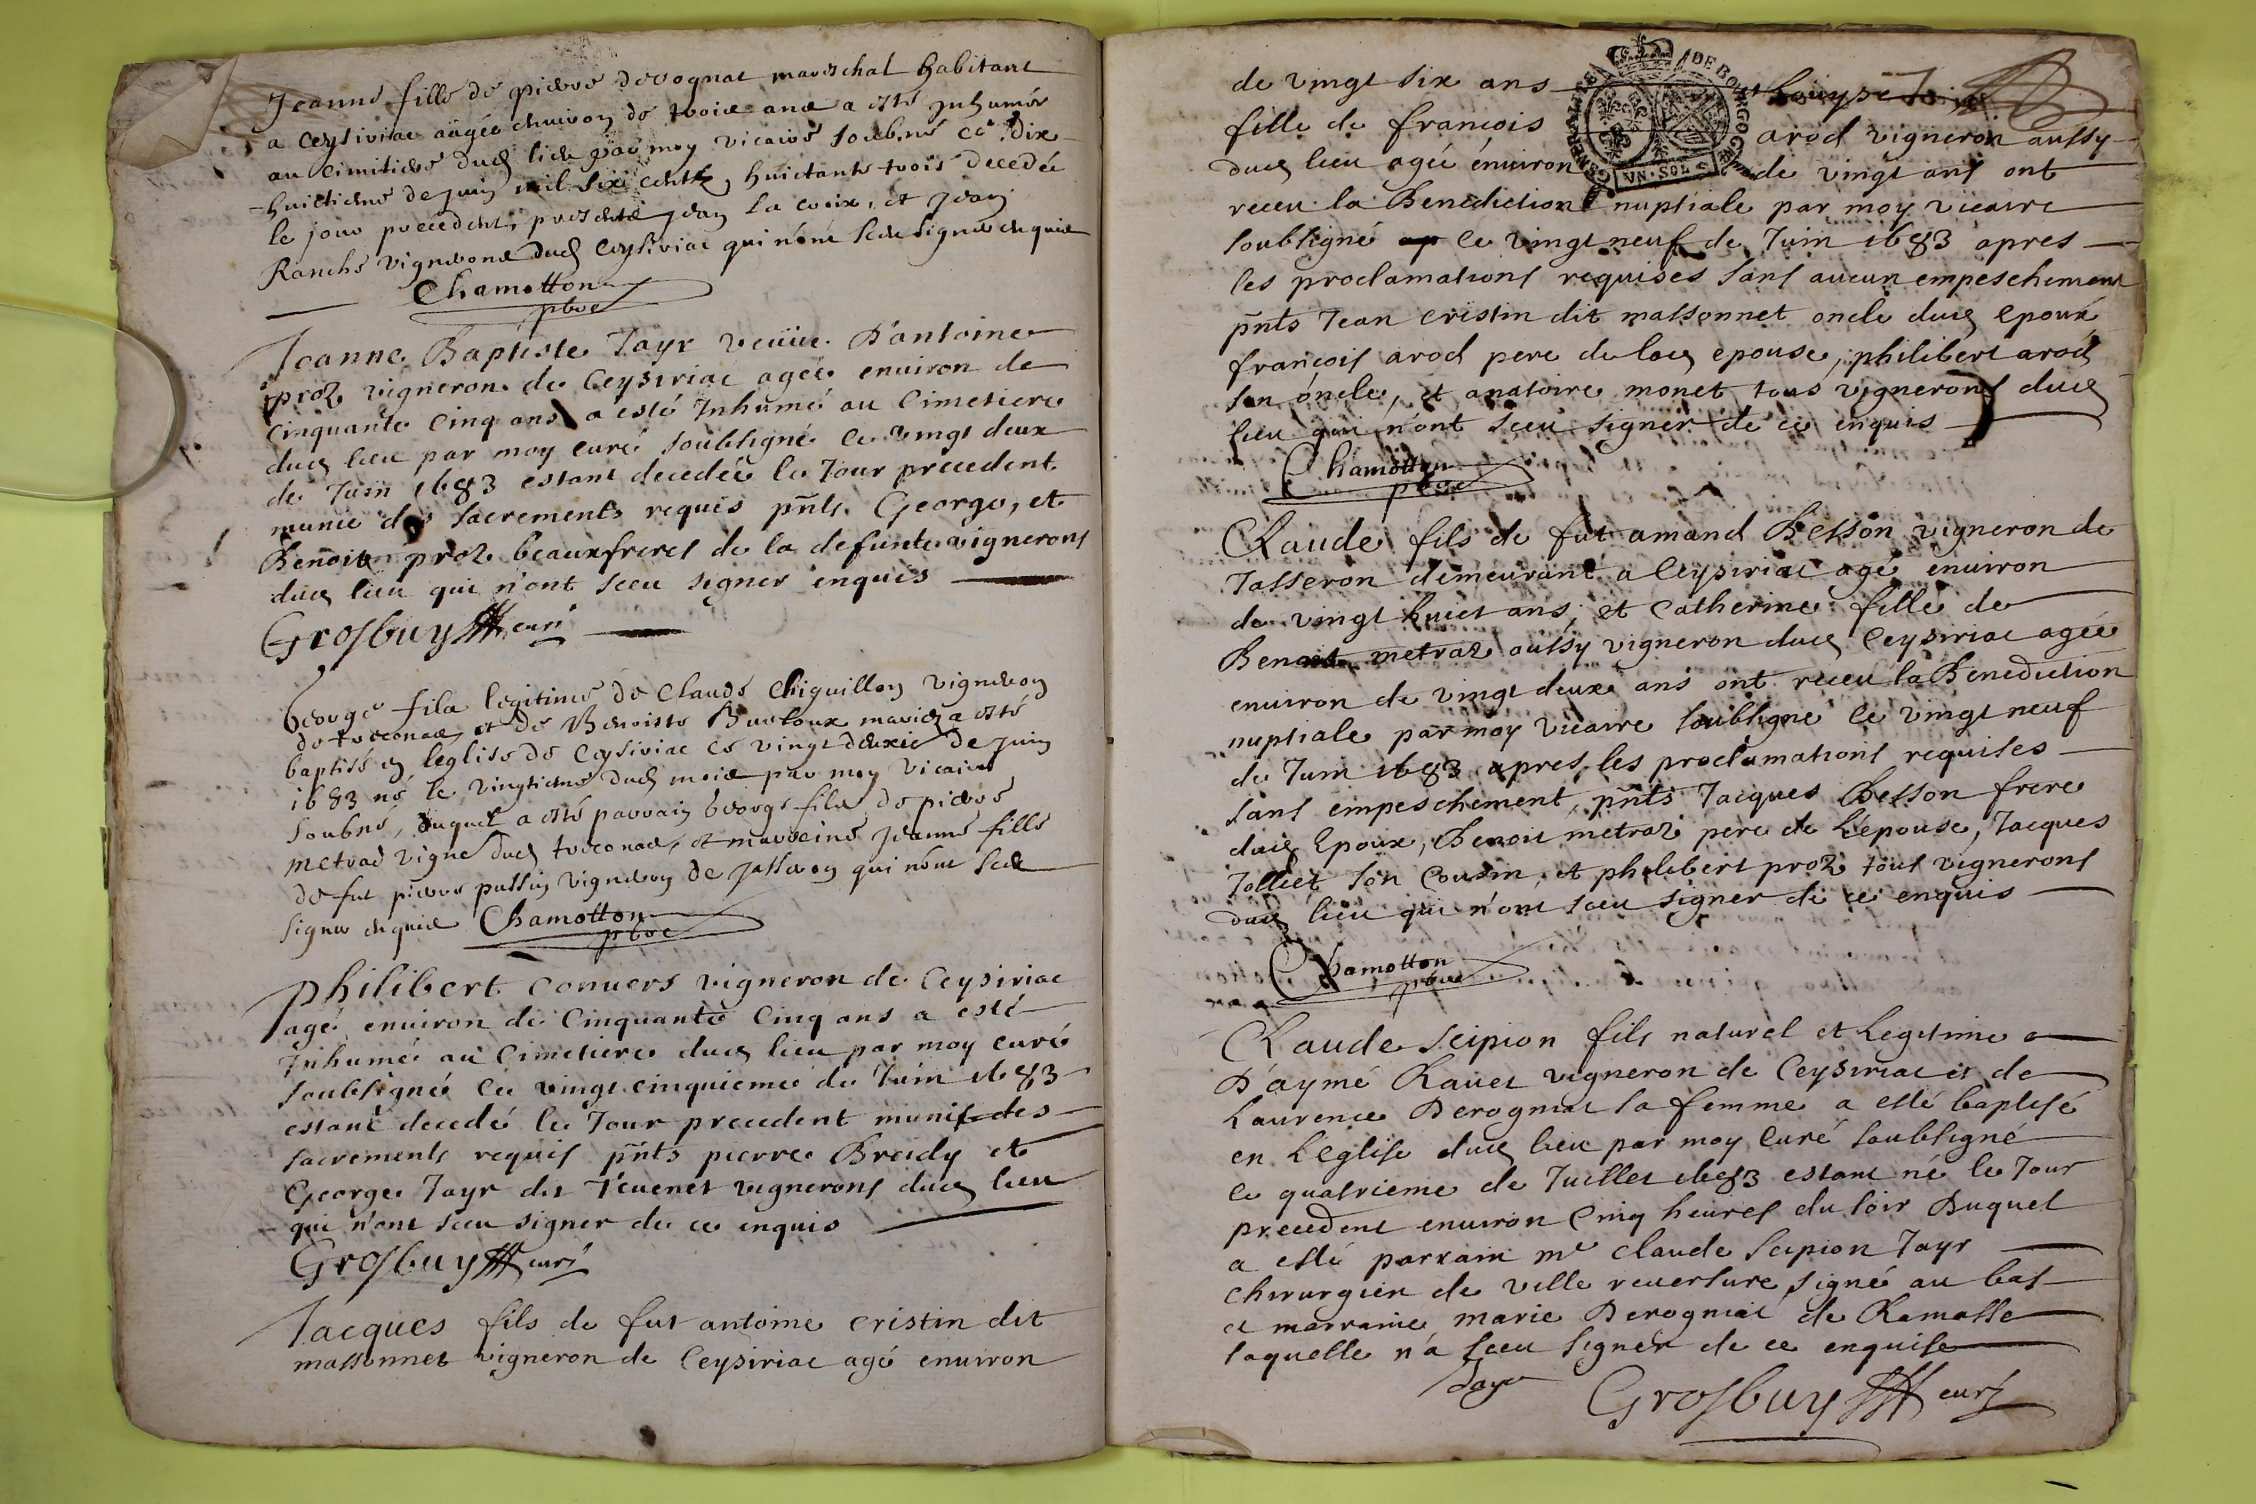 Jeanne fille de pierre derognat mareschal habitant
a ceysiriac aagée environ de trois ans a esté inhumée
au cimitiere dud lieu par moy vicaire soubné ce dix
huictiene de juin mil six cents huictante trois decedée
le jour precedent, presents jean la croix, et jean
Ranche vignerons dud ceysiriac qui n'ont sceu signer enquis
Chamotton
pbre
Jeanne Baptiste Jayr veüue D'antoine
proz vigneron de Ceysiriac agée enuiron de
cinquante cinq ans a esté Inhumé au Cimetiere
dud lieu par moy curé soubsigné le vingt deux
de Juin 1683 estant decedée le Jour precedent
munie des sacrements requis pnts. George, et
Benoit proz beauxfreres de la defunte vignerons
dud lieu qui n'ont sceu signer enquis
Grosbuy curé
George fils legitime de Claude Chiguillon vigneron
de treconas, et de Benoiste Burtoux mariez a esté
baptisé en leglise de Ceysiriac ce vingt deuxie de juin
1683 né le vingtiene dud mois par moy vicaire
soubné, duquel a esté parrain george fils de pierre
metrad vigne dud treconas, et marreine jeanne fille
de fut pierre pussin vigneron de jasseron qui n'ont sceu
signer enquis Chamotton
pbre
philibert conuers vigneron de Ceysiriac
agé enuiron de Cinquante Cinq ans a esté
Inhumé au Cimetiere dud lieu par moy curé
soubsigné le vingt cinquieme de Juin 1683
estant decedé le Jour precedent munis des
sacrements requis pnts pierre Breidy et
George Jayr dit Teuenet vignerons dud lieu
qui n'ont sceu signer de ce enquis
Grosbuy curé
Jacques fils de fut antoine cristin dit
massonnet vigneron de Ceysiriac agé enuiron
de vingt six ans
fille de francois arod vigneron aussy
dud lieu agée énuiron de vingt ans ont
receu la Benediction nuptiale par moy vicaire
soubsigné ce vingt neuf de Juin 1683 apres
les proclamations requises sans aucun empeschement
pnts Jean cristin dit massonnet oncle dud epoux
francois arod pere de lad epouse, philibert arod
son óncle, et anatoire monet tous vignerons dud
lieu qui n'ont sceu signer de ce enquis
Chamotton
pbre
Claude fils de fut amand Besson vigneron de
Jasseron demeurant a Ceysiriac agé enuiron
de vingt huict ans, et Catherine fille de
Benoit metraz aussy vigneron dud Ceysiriac agée
enuiron de vingt deux ans ont receu la Benediction
nuptiale par moy vicaire soubsigné le vingt neuf
de Juin 1683 apres les proclamations requises
sans empeschement, pnts Jacques Besson frere
dud Epoux, Benoit metraz pere de L'epouse, Jacques
Jolliet son Cousin, et philibert proz tous vignerons
dud lieu qui n'ont sceu signer de ce enquis
Chamotton
pbre
Claude Scipion fils naturel et Legitime
D'aymé Rauet vigneron de Ceysiriac et de
Laurence Derogniat sa femme a esté baptisé
en L'Eglise dud lieu par moy Curé soubsigné
le quatrieme de Juillet 1683 estant né le Jour
precedent enuiron Cinq heures du soir Duquel
a esté parrain me claude Scipion Jayr
chirurgien de ville reuersure signé au bas
et marraine marie Derogniat de Ramasse
laquelle n'a sceu signer de ce enquise
Jayr Grosbuy curé